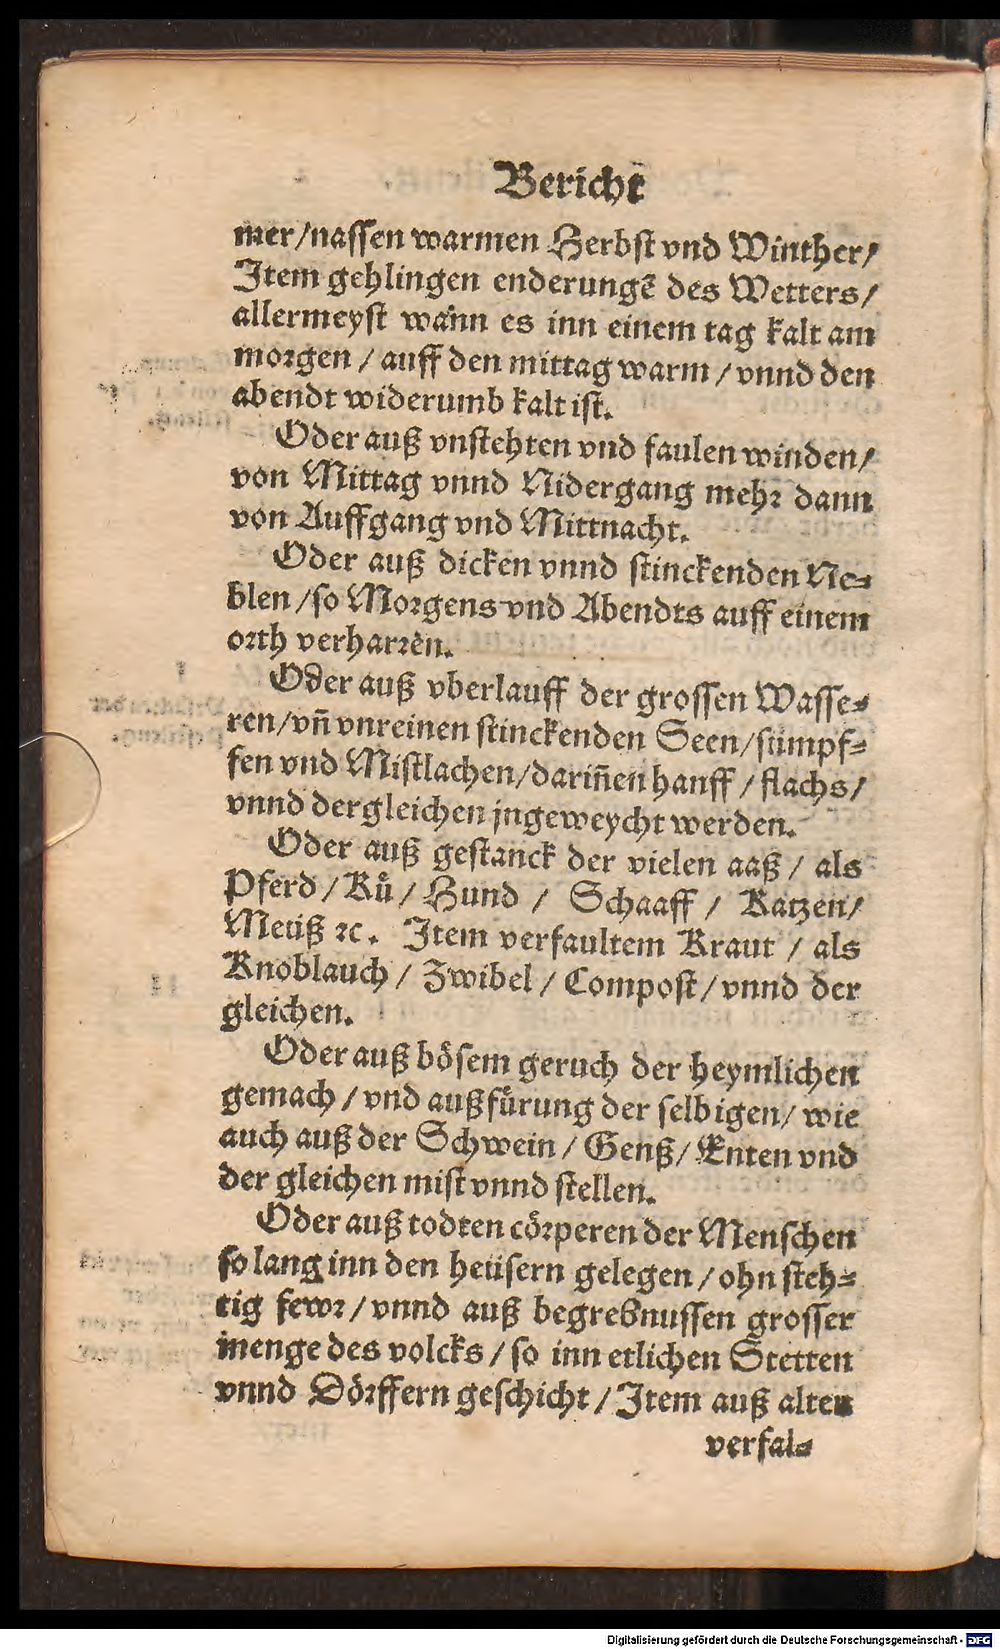 Bericht
mer/nassen warmen Herbst vnd Winther/
Item gehlingen enderungē des Wetters/
allermeyst wann es inn einem tag kalt am
morgen / auff den mittag warm / vnnd den
abendt widerumb kalt ist.
Oder auß vnstehten vnd faulen winden/
von Mittag vnnd Nidergang mehr dann
von Auffgang vnd Mittnacht.
Oder auß dicken vnnd stinckenden Ne-
blen /so Morgens vnd Abendts auff einem
orth verharren.
Oder auß vberlauff der grossen Wasse-
ren/vñ vnreinen stinckenden Seen/sümpf-
fen vnd Mistlachen/dariñen hanff / flachs/
vnnd dergleichen jngeweycht werden.
Oder auß gestanck der vielen aaß / als
Pferd / Kuͤ / Hund / Schaaff / Katzen/
Meüß ꝛc. Item verfaultem Kraut / als
Knoblauch / Zwibel / Compost / vnnd der
gleichen.
Oder auß boͤsem geruch der heymlichen
gemach / vnd außfuͤrung der selbigen/ wie
auch auß der Schwein / Genß/ Enten vnd
der gleichen mist vnnd stellen.
Oder auß todten coͤrperen der Menschen
so lang inn den heüsern gelegen / ohn steh-
tig fewr / vnnd auß begrebnussen grosser
menge des volcks / so inn etlichen Stetten
vnnd Doͤrffern geschicht / Item auß alten
verfal-
Digitalisierung gefördert durch die Deutsche Forschungsgemeinschaft - DFG